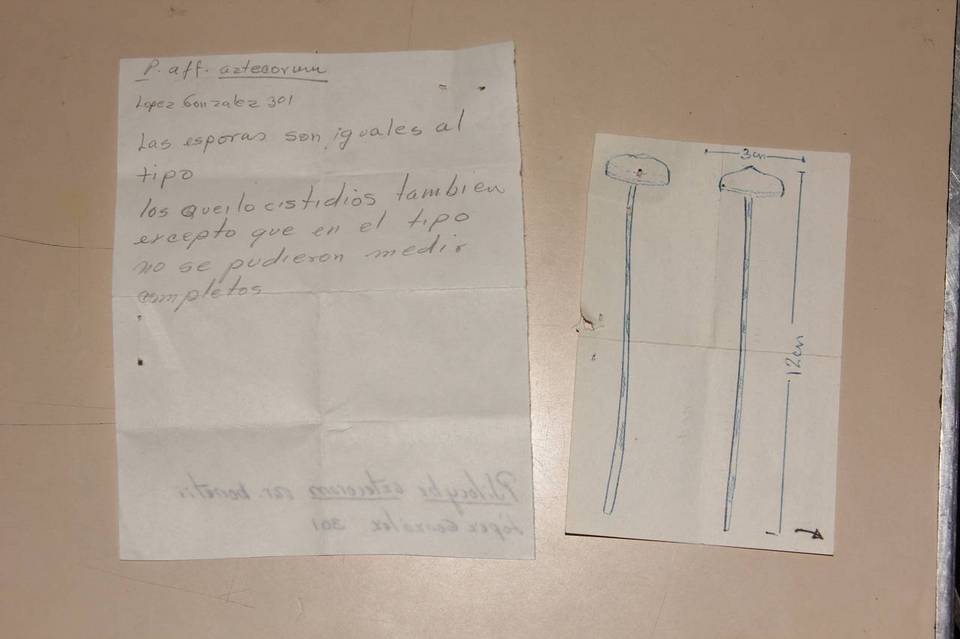 P. aff. aztecorum
Lopez Gonzalez 301
Las esporas son iguales al
tipo
los queilocistidios tambien
excepto que en el tipo
no se pudieron medir
completos
Psilocybe aztecorum var. bonetii
López González 301
3cm
12cm